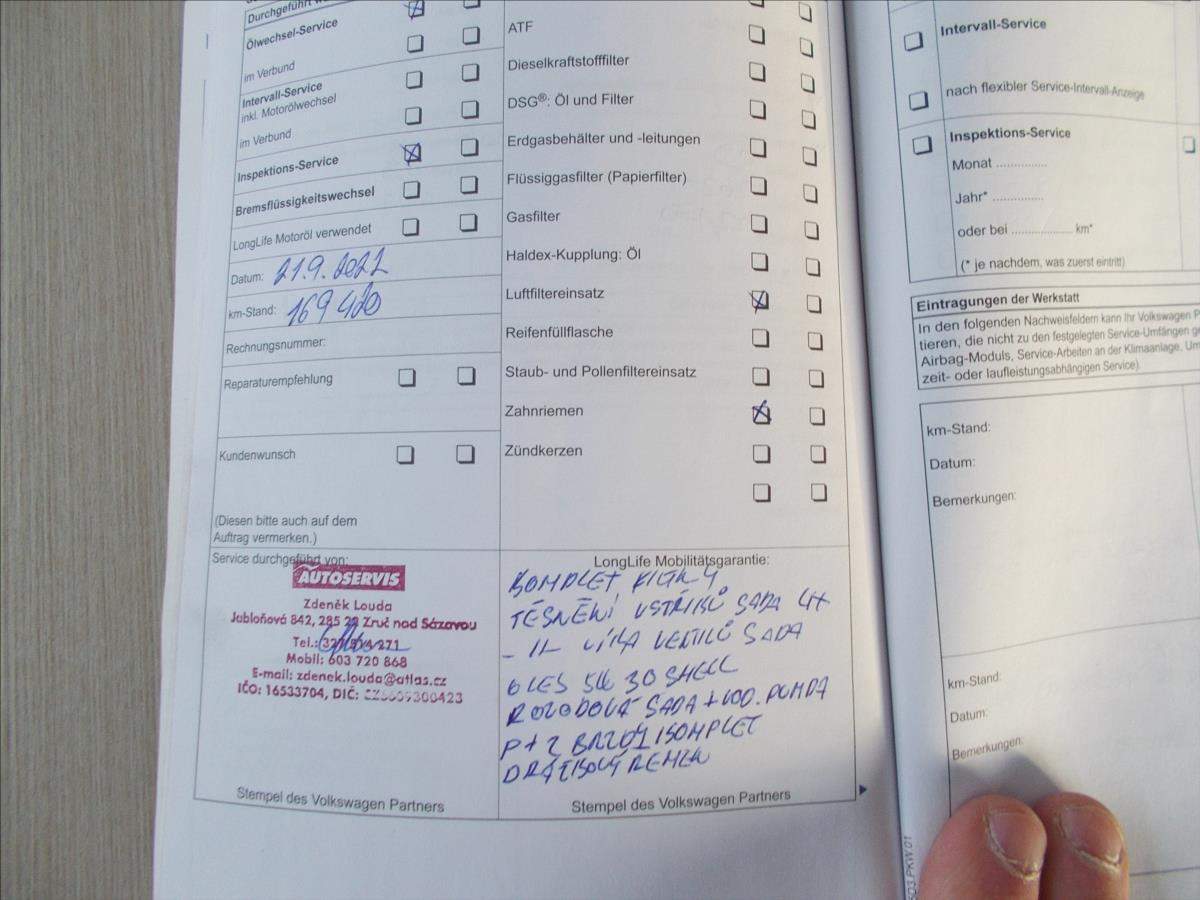 Durchgeführt
Ölwechsel-Service
im Verbund
Intervall-Service
inkl. Motorölwechsel
im Verbund
Inspektions-Service
Bremsflüssigkeitswechsel
LongLife Motoröl verwendet
Datum: 21.9.2021
km-Stand: 169 400
Rechnungsnummer:
Reparaturempfehlung
Kundenwunsch
(Diesen bitte auch auf dem
Auftrag vermerken.)
Service durchgeführt von:
AUTOSERVIS
Zdeněk Louda
Jabloňová 842, 285 22 Zruč nad Sázavou
Tel.:
Mobil: 603 720 868
E-mail: zdenek.louda@atlas.cz
IČO: 16533704, DIČ:
Stempel des Volkswagen Partners
ATF
Dieselkraftstofffilter
DSG®: Öl und Filter
Erdgasbehälter und -leitungen
Flüssiggasfilter (Papierfilter)
Gasfilter
Haldex-Kupplung: Öl
Luftfiltereinsatz
Reifenfüllflasche
Staub- und Pollenfiltereinsatz
Zahnriemen
Zündkerzen
LongLife Mobilitätsgarantie:
KOMPLET FILTRY
TĚSNĚNÍ VSTŘIKŮ SADA 4X
- 11 - VÍKA VENTILŮ SADA
OLEJ 5W 30 SHELL
ROZVODOVÁ SADA + VOD. PUMPA
P+Z BRZDY KOMPLET
DRÁŽKOVÝ ŘEMEN
Stempel des Volkswagen Partners
Intervall-Service
nach flexibler Service-Intervall-Anzeige
Inspektions-Service
Monat ..............
Jahr* ..............
oder bei ................. km*
(* je nachdem, was zuerst eintritt)
Eintragungen der Werkstatt
In den folgenden Nachweisfeldern kann Ihr Volkswagen P
tieren, die nicht zu den festgelegten Service-Umfängen
Airbag-Moduls, Service-Arbeiten an der Klimaanlage, Um
zeit- oder laufleistungsabhängigen Service).
km-Stand:
Datum:
Bemerkungen:
km-Stand:
Datum:
Bemerkungen:
PKW 01